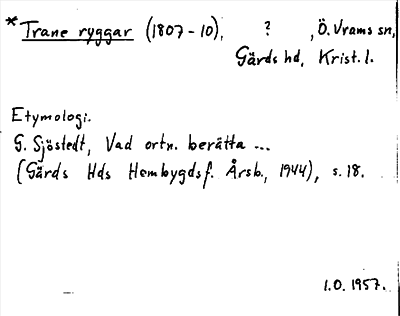 *Trane ryggar (1807-10), ? , Ö. Vrams sn,
Gärds hd, Krist. l.
Etymologi.
G. Sjöstedt, Vad ortn. berätta ...
(Gärds Hds Hembygdsf. Årsb., 1944), s. 18.
1.0. 1957.